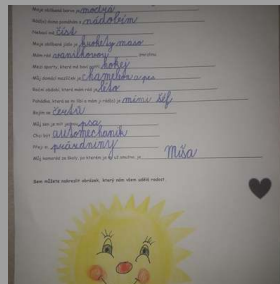 Moje oblíbená barva je modrá
Rád(a) doma pomáhám s nádobím
Nebaví mě číst
Moje oblíbené jídlo je krokety maso
Mám rád vanilkovou zmrzlinu
Mezi sporty, které mě baví patří hokej
Můj domácí mazlíček je chameleon a pes
Roční období, které mám rád je léto
Pohádka, která se mi líbí a mám ji rád(a) je mimi šéf
Bojím se čertů
Můj sen je mít psa
Chci být automechanik
Přeji si prázdniny
Můj kamarád ze školy, po kterém je mi už smutno, je Míša
Sem můžete nakreslit obrázek, který nám všem udělá radost